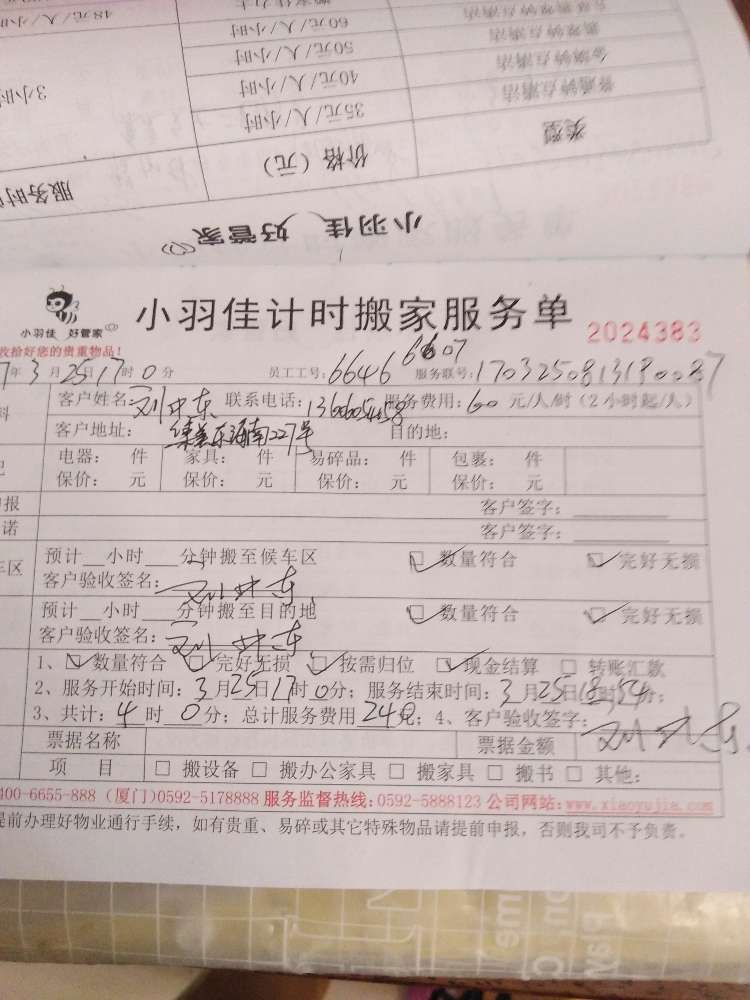 48元/人/小时
60元/人/小时
50元/人/小时
金牌钟点清洁
3小时
40元/人/小时
普通钟点清洁
35元/人/小时
类型
价格（元）
服务时
小羽佳 好管家
小羽佳 好管家
小羽佳计时搬家服务单 2024383
收拾好您的贵重物品！
7年3月25日17时0分 员工工号：6646 6607 服务联号：
客户姓名：刘中东 联系电话： 服务费用：60元/人/时（2小时起/人）
客户地址： 227号 目的地：
电器： 件 家具： 件 易碎品： 件 包裹： 件
保价： 元 保价： 元 保价： 元 保价： 元
报 客户签字：
诺 客户签字：
车区 预计__小时__分钟搬至候车区 ☑数量符合 ☑完好无损
客户验收签名：刘中东
预计__小时__分钟搬至目的地 ☑数量符合 ☑完好无损
客户验收签名：刘中东
1、☑数量符合 ☑完好无损 ☑按需归位 ☑现金结算 □转账汇款
2、服务开始时间：3月25日17时0分；服务结束时间：3月25日18时54分；
3、共计：4时0分；总计服务费用240元；4、客户验收签字：刘中东
票据名称 票据金额
项 目 □搬设备 □搬办公家具 □搬家具 □搬书 □其他：
400-6655-888（厦门）0592-5178888 服务监督热线：0592-5888123 公司网站：www.xiaoyujia.com
提前办理好物业通行手续，如有贵重、易碎或其它特殊物品请提前申报，否则我司不予负责。